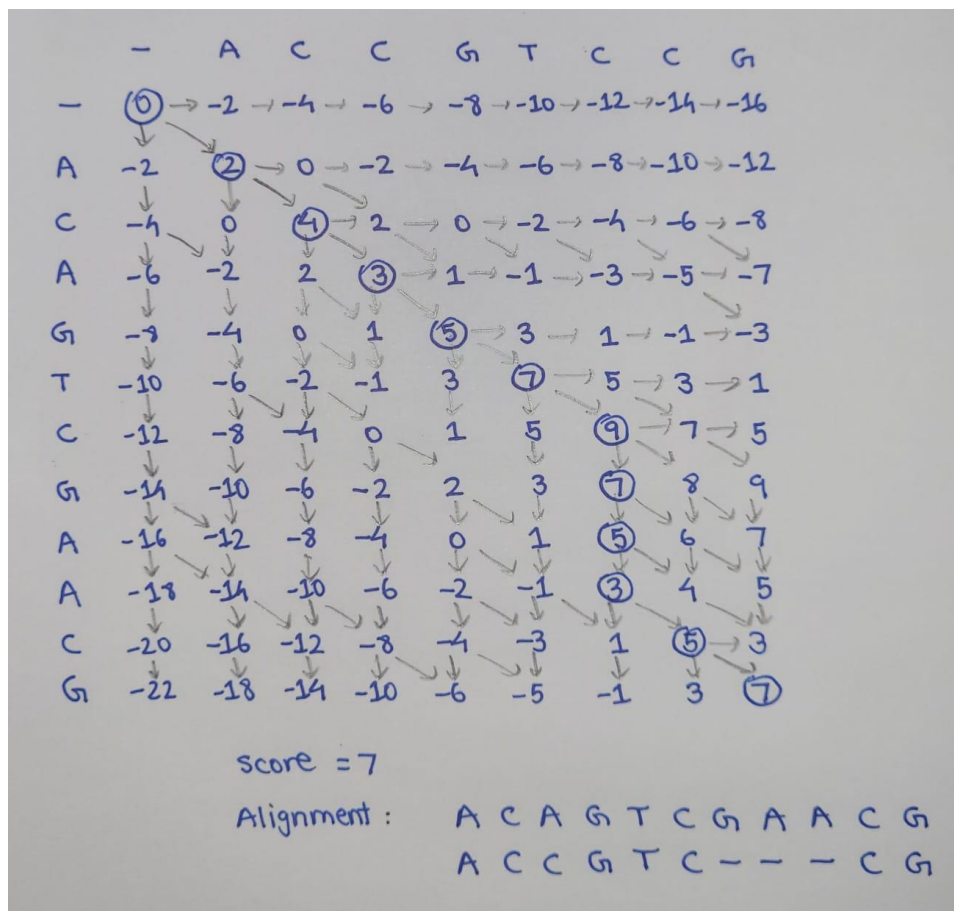 - A C C G T C C G
- 0 → -2 → -4 → -6 → -8 → -10 → -12 → -14 → -16
A -2 2 → 0 → -2 → -4 → -6 → -8 → -10 → -12
C -4 0 4 → 2 → 0 → -2 → -4 → -6 → -8
A -6 -2 2 3 → 1 → -1 → -3 → -5 → -7
G -8 -4 0 1 5 → 3 → 1 → -1 → -3
T -10 -6 -2 -1 3 7 → 5 → 3 → 1
C -12 -8 -4 0 1 5 9 → 7 → 5
G -14 -10 -6 -2 2 3 7 8 9
A -16 -12 -8 -4 0 1 5 6 7
A -18 -14 -10 -6 -2 -1 3 4 5
C -20 -16 -12 -8 -4 -3 1 5 → 3
G -22 -18 -14 -10 -6 -5 -1 3 7
score = 7
Alignment : A C A G T C G A A C G
A C C G T C - - - C G